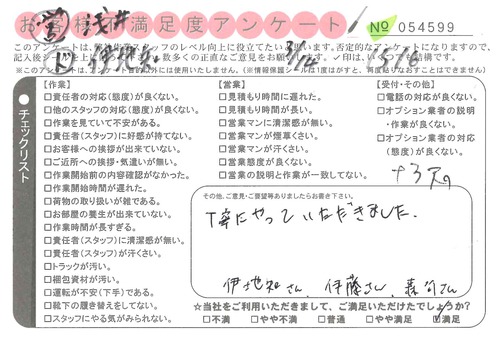 お客様満足度アンケート
営 浅井
№ 054599
このアンケートは、
スタッフのレベル向上に役立てたい
思います。否定的なアンケートになりますので、
数多くの正直なご意見をお
✓印は、
結構です。
(※情報保護シールは1度はがすと、再度貼りなおすことはできません)
チェックリスト
【作業】
□責任者の対応(態度)が良くない。
□他のスタッフの対応(態度)が良くない。
□作業を見ていて不安がある。
□責任者(スタッフ)に好感が持てない。
□お客様への挨拶が出来ていない。
□ご近所への挨拶・気遣いが無い。
□作業開始前の内容確認がなかった。
□作業開始時間が遅れた。
□荷物の取り扱いが雑である。
□お部屋の養生が出来ていない。
□作業時間が長すぎる。
□責任者(スタッフ)に清潔感が無い。
□責任者(スタッフ)が汗くさい。
□トラックが汚い。
□梱包資材が汚い。
□運転が不安(下手)である。
□靴下の履き替えをしてない。
□スタッフにやる気がみられない。
【営業】
□見積もり時間に遅れた。
□見積もり時間が長い。
□営業マンに清潔感が無い。
□営業マンが煙草くさい。
□営業マンが汗くさい。
□営業態度が良くない。
□営業の説明と作業が一致してない。
【受付・その他】
□電話の対応が良くない。
□オプション業者の説明
・作業が良くない。
□オプション業者の対応
(態度)が良くない。
その他、ご意見・ご要望等ありましたらお書き下さい。
丁寧にやっていただきました。
伊地知さん 伊藤さん 森司さん
★当社をご利用いただきまして、ご満足いただけたでしょうか?
□不満 □やや不満 □普通 □やや満足 □満足